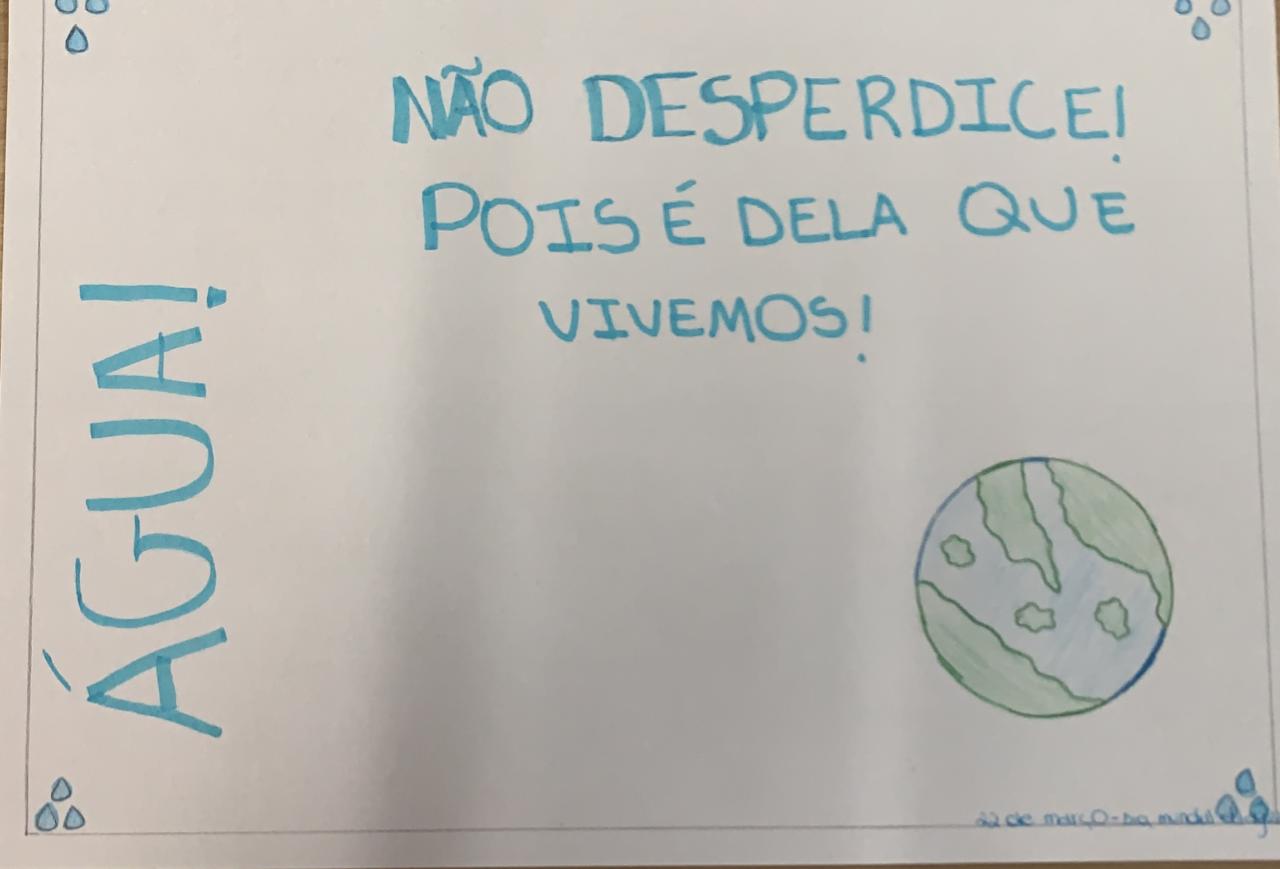 ÁGUA!
NÃO DESPERDICE!
POIS É DELA QUE
VIVEMOS!
22 de março - Dia mundial